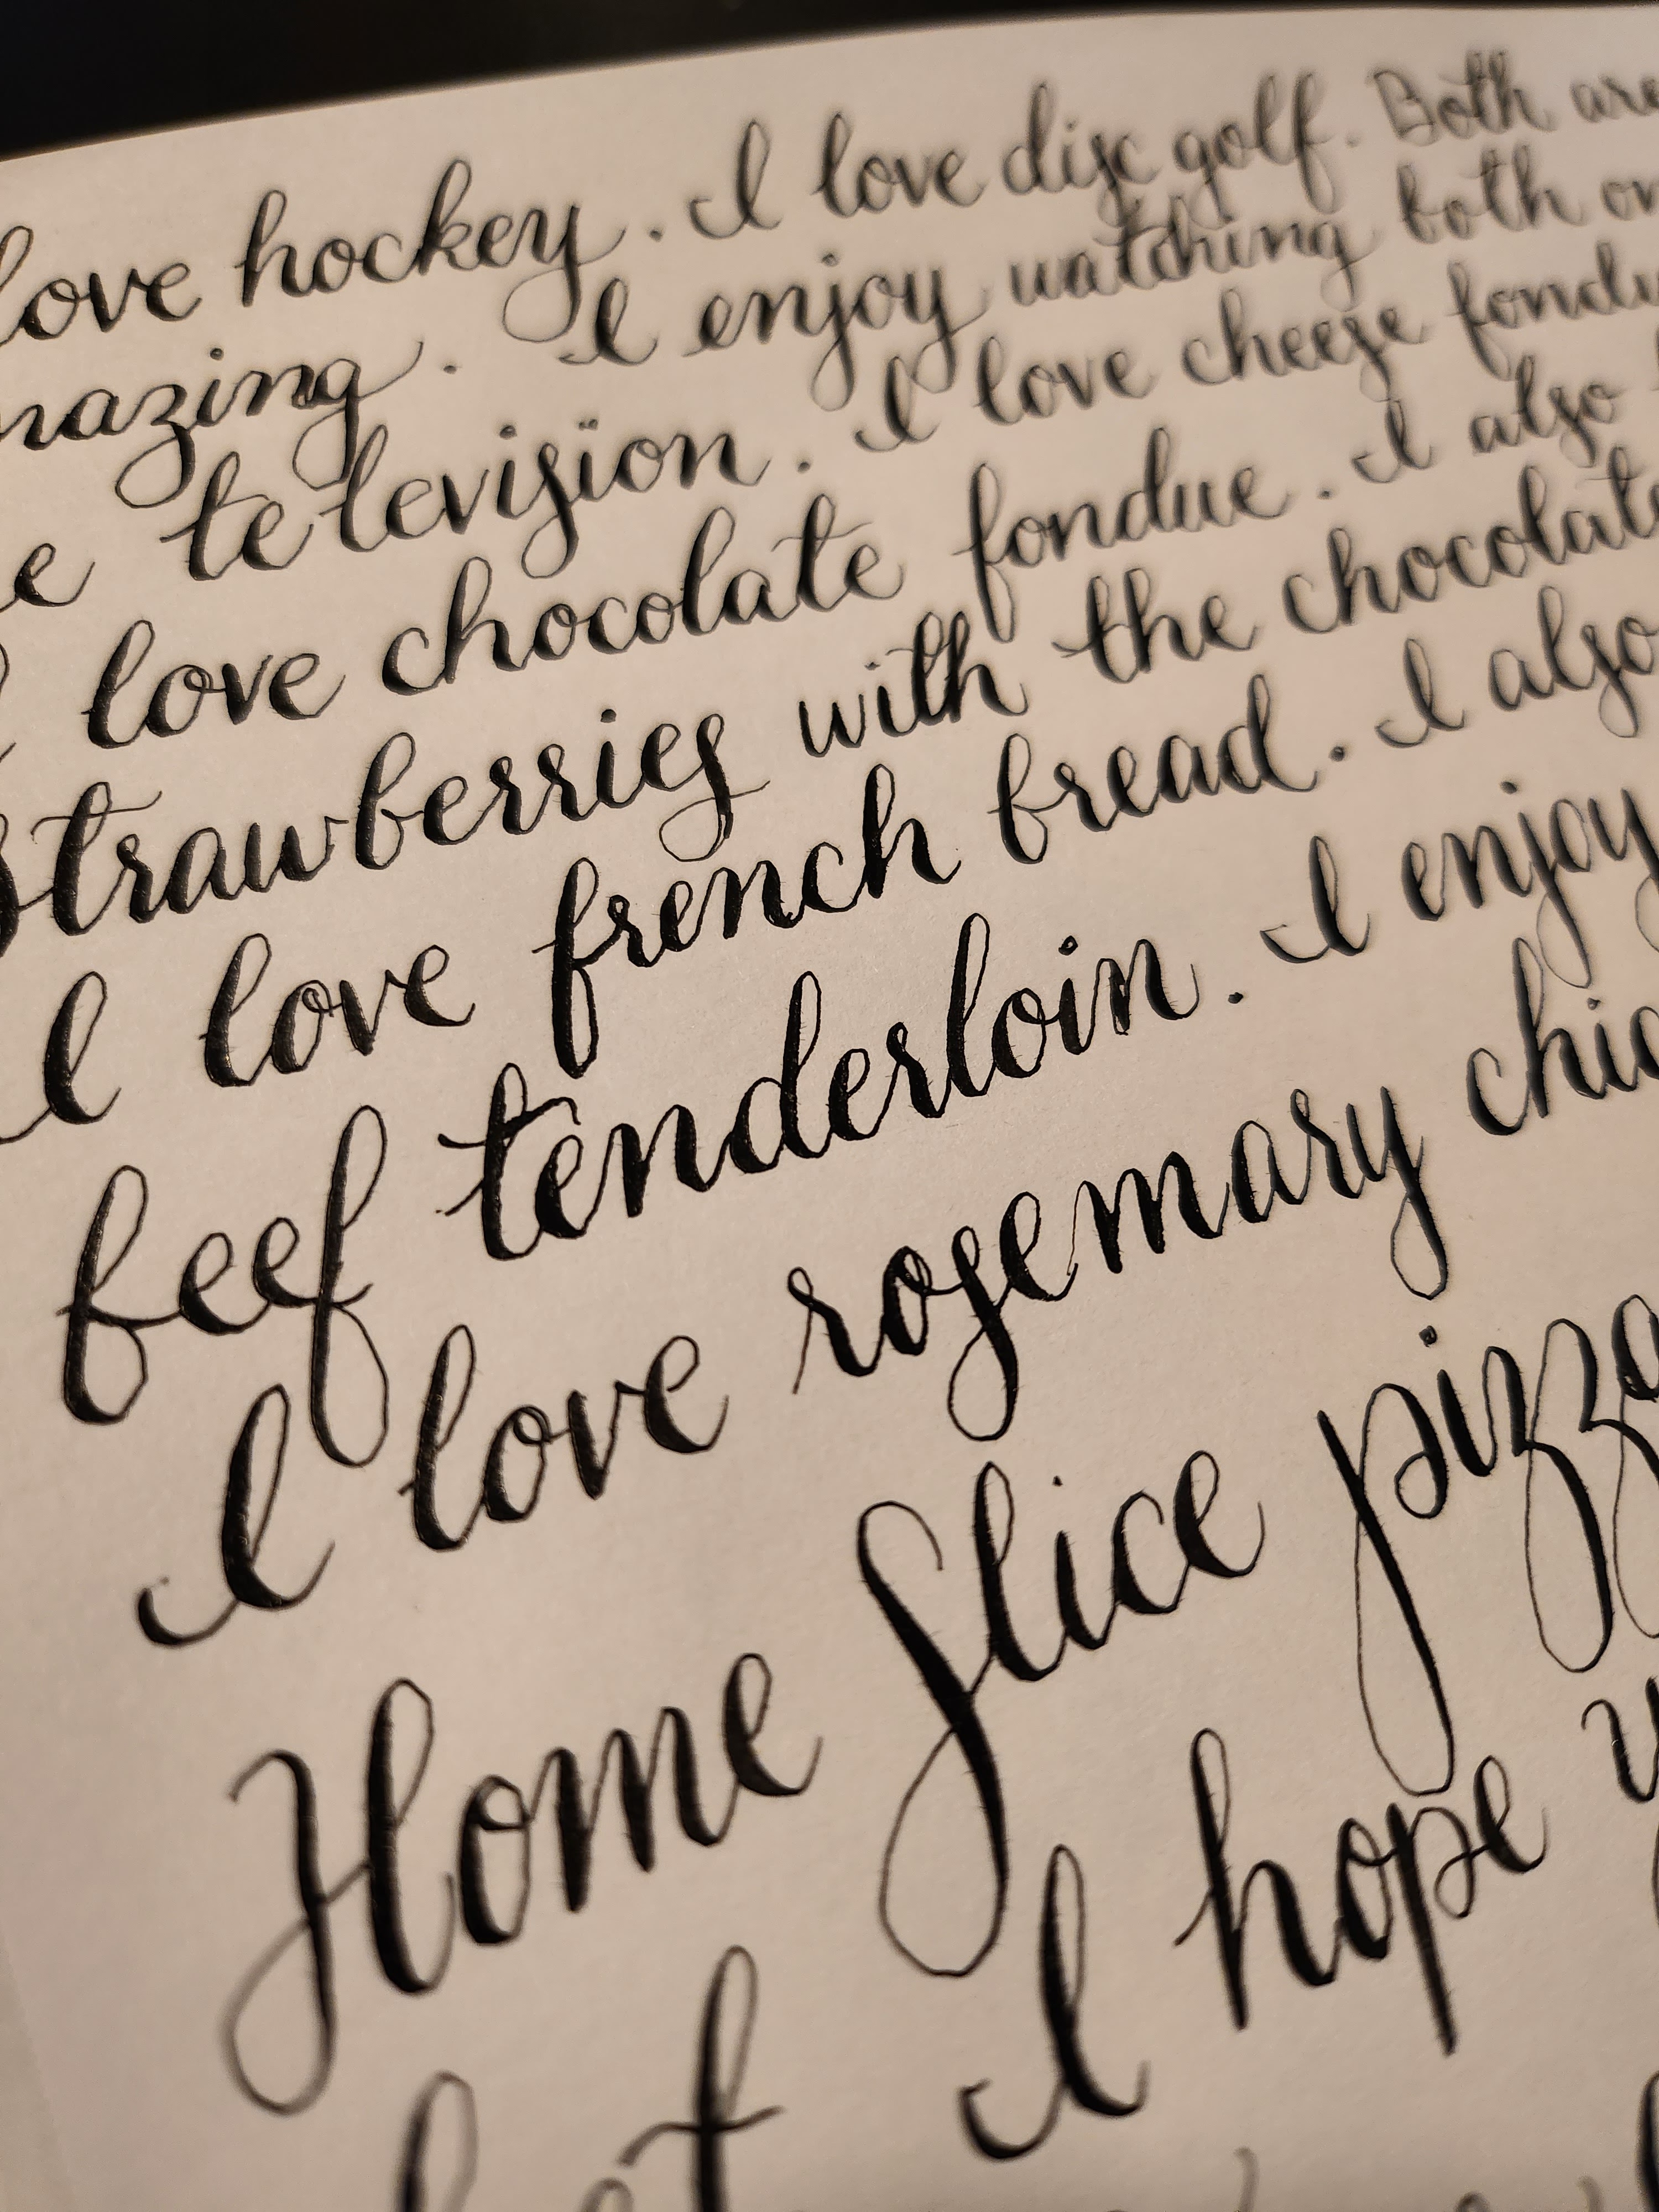 love hockey. I love disc golf. Both are
mazing. I enjoy watching both on
e television. I love cheese fondu
I love chocolate fondue. I also
Strawberries with the chocolate
I love french bread. I also
beef tenderloin. I enjoy
I love rosemary chic
Home Slice pizza
I hope